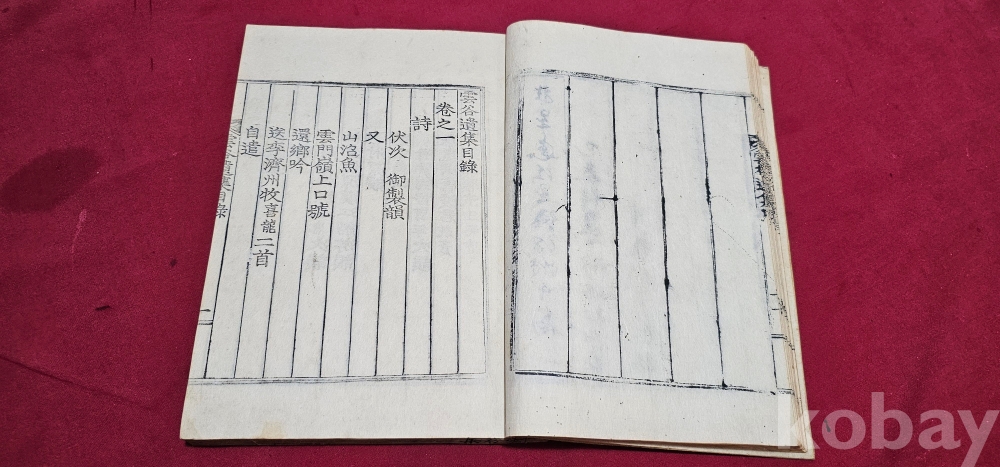 雲谷遺集目錄
卷之一
詩
伏次 御製韻
又
山沼魚
雲門嶺上口號
還鄉吟
送李濟州牧喜龍二首
自遣
雲谷遺集目錄
kobay